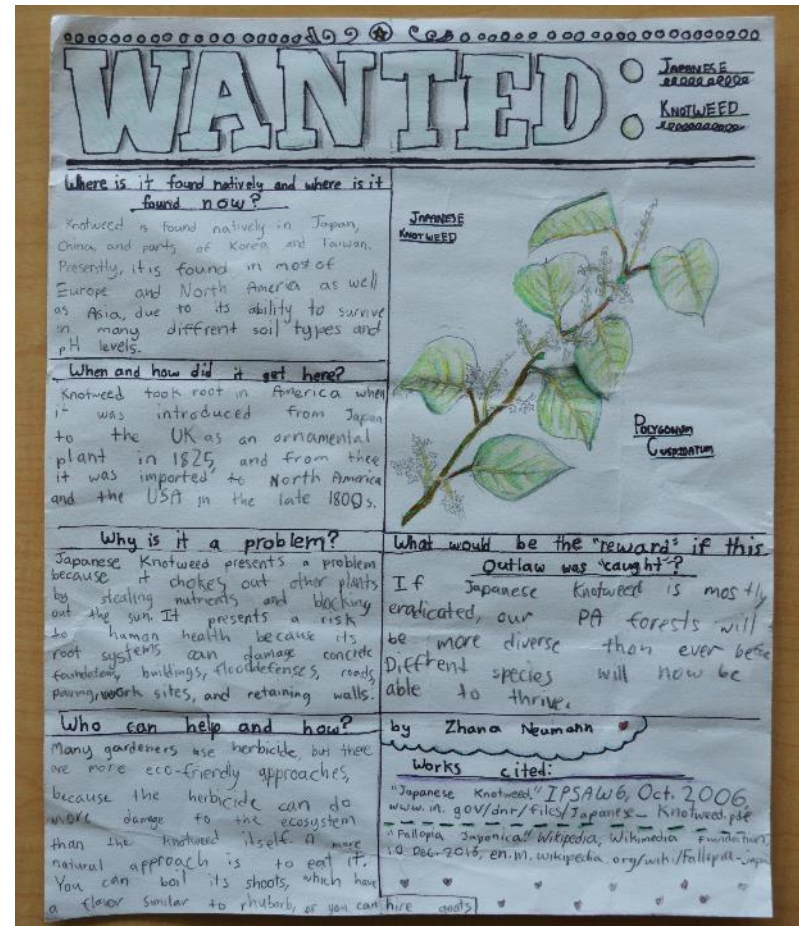 WANTED
JAPANESE
KNOTWEED
Where is it found natively and where is it
found now?
Knotweed is found natively in Japan,
China, and parts of Korea and Taiwan.
Presently, it is found in most of
Europe and North America as well
as Asia, due to its ability to survive
in many diffrent soil types and
pH levels.
When and how did it get here?
Knotweed took root in America when
it was introduced from Japan
to the UK as an ornamental
plant in 1825, and from there
it was imported to North America
and the USA in the late 1800s.
Why is it a problem?
Japanese Knotweed presents a problem
because it chokes out other plants
by stealing nutrients and blocking
out the sun. It presents a risk
to human health because its
root systems can damage concrete
foundations, buildings, flooddefenses, roads,
paving, work sites, and retaining walls.
Who can help and how?
Many gardeners use herbicide, but there
are more eco-friendly approaches,
because the herbicide can do
more damage to the ecosystem
than the knotweed itself. A more
natural approach is to eat it.
You can boil its shoots, which have
a flavor similar to rhubarb, or you can hire goats
JAPANESE
KNOTWEED
POLYGONUM
CUSPIDATUM
What would be the "reward" if this
Outlaw was "caught"?
If Japanese Knotweed is mostly
eradicated, our PA forests will
be more diverse than ever before
Diffrent species will now be
able to thrive.
by Zhana Neumann
Works cited:
"Japanese Knotweed." IPSAWG, Oct. 2006,
www.in.gov/dnr/files/Japanese_Knotweed.pdf
"Fallopia Japonica." Wikipedia, Wikimedia Foundation,
10 Dec. 2018, en.m.wikipedia.org/wiki/Fallopia-